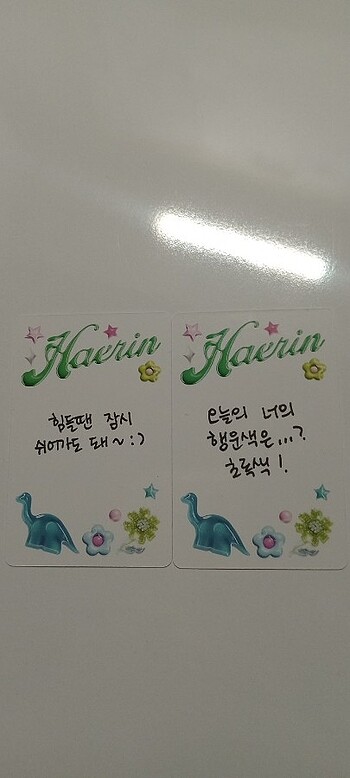 Haerin
힘들땐 잠시
쉬어가도 돼~:)
Haerin
오늘의 너의
행운색은...?
초록색!